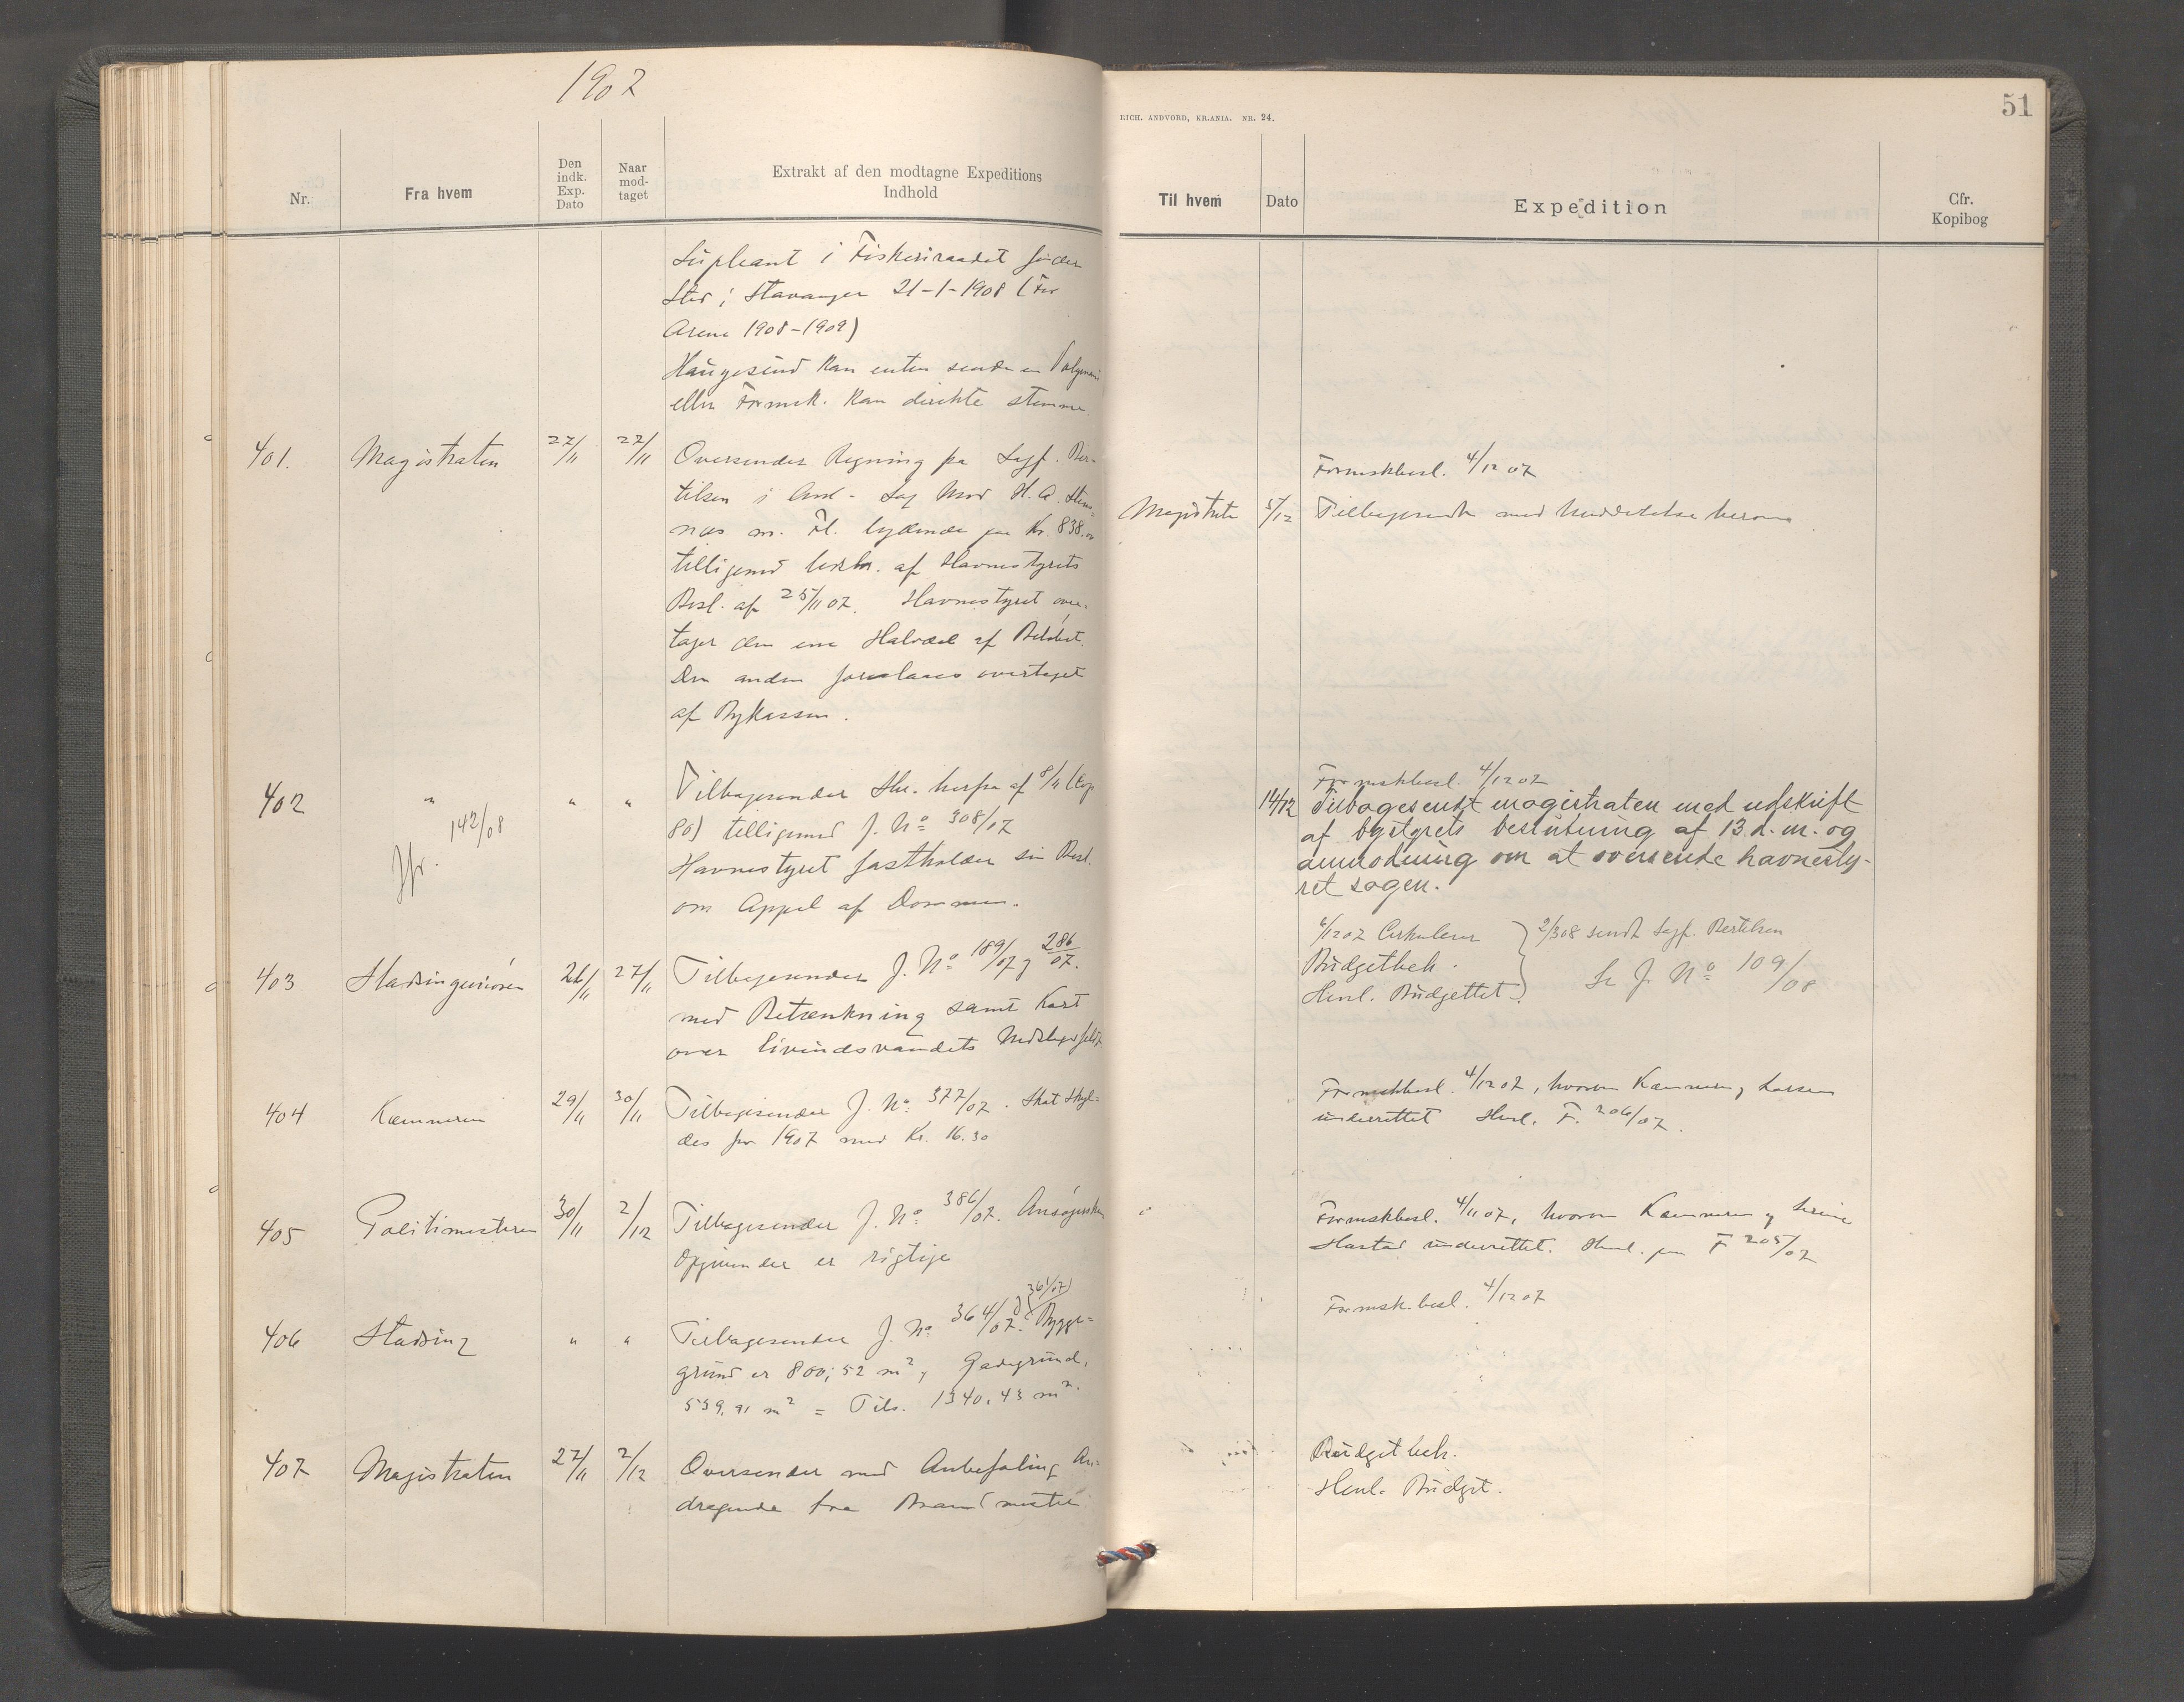 1907
Nr.
Fra hvem
Den indk. Exp. Dato
Naar mod- taget
Extrakt af den modtagne Expeditions
Indhold
Supleant i Fiskeriraadet finder
Sted i Stavanger 21-1-1908 (for
Arene 1908-1909)
Haugesund kan enten sende en Valgmand
eller Formsk. kan direkte stemme
401. Magistraten 27/11 27/11 Oversender Regning fra Sagf. Ber-
tilsen i Anl. Sag mod H. A. Sten-
næs m. Fl. lydende paa Kr. 838.00
tilligemed bekr. af Havnestyrets
Besl. af 25/11 07. Havnestyret over-
tager den ene Halvdel af Beløbet.
Den anden foreslaaes overtaget
af Bykassen.
402 " " " Tilbagesender Skr. herfra af 8/11 (Kop
80) tilligemed J. No 308/07
Jfr. 142/08
Havnestyret fastholder sin Besl.
om Appel af Dommen.
403 Stadsingeniøren 26/11 27/11 Tilbagesender J. No 189/07 og 286/07.
med Betænkning samt Kart
over Eivindsvandets Nedslagsfelt
404 Kæmneren 29/11 30/11 Tilbagesender J. No. 377/07. Skat skyl-
des for 1907 med Kr. 16.30
405 Politimesteren 30/11 2/12 Tilbagesender J. No. 386/07. Ansøgerskens
Opgivender er rigtige
406 Stadsing " " Tilbagesender J. No. 364/07. (361/07) Bygge-
grund er 800,52 m², Gadegrund,
539,91 m² = Tils. 1340.43 m².
407 Magistraten 27/11 2/12 Oversender med Anbefaling An-
dragende fra Brandmester
RICH. ANDVORD, KR.ANIA. NR. 24.
51
Til hvem
Dato
Expedition
Cfr.
Kopibog
Formskbesl. 4/12 07
Magistraten 5/12 Tilbagesendt med Meddelelse herom
Formskbesl. 4/12 07
14/12 Tilbagesendt magistraten med udskrift
af bystyrets beslutning af 13. d. m. og
anmodning om at oversende havnesty-
ret sagen.
6/12 07 Cirkulerer
Budgetbeh.
Henl. Budgettet.
2/3 08 sendt Sagf. Bertelsen
Se J. No 109/08
Formskbesl. 4/12 07, hvorom Kæmneren og Larsen
underrettet Henl. F. 206/07.
Formskbesl. 4/11 07, hvorom Kæmneren og Serine
Hastad underrettet. Henl. paa F 205/07
Formsk. besl. 4/12 07
Budgetbeh.
Henl. Budget.